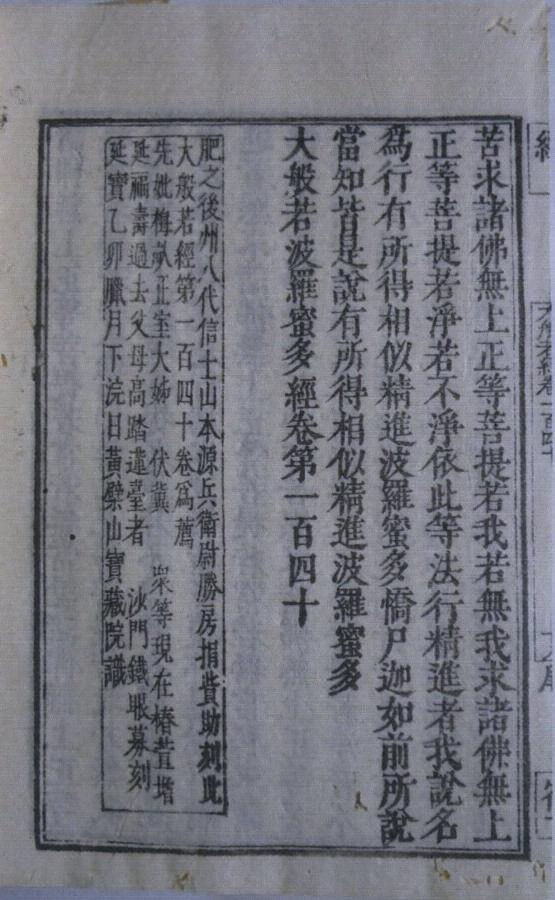 苦求諸佛無上正等菩提若我若無我求諸佛無上
正等菩提若淨若不淨依此等法行精進者我說名
爲行有所得相似精進波羅蜜多憍尸迦如前所說
當知皆是說有所得相似精進波羅蜜多
大般若波羅蜜多經卷第一百四十
肥之後州八代信士山本源兵衛尉勝房捐貲助刻此
大般若經第一百四十卷爲薦
先妣梅嶽正室大姊 伏冀 衆等現在椿萱增
延福壽過去父母高踏蓮臺者 沙門鐵眼募刻
延寶乙卯臘月下浣日黃檗山寶藏院識
大般若經卷一百四十